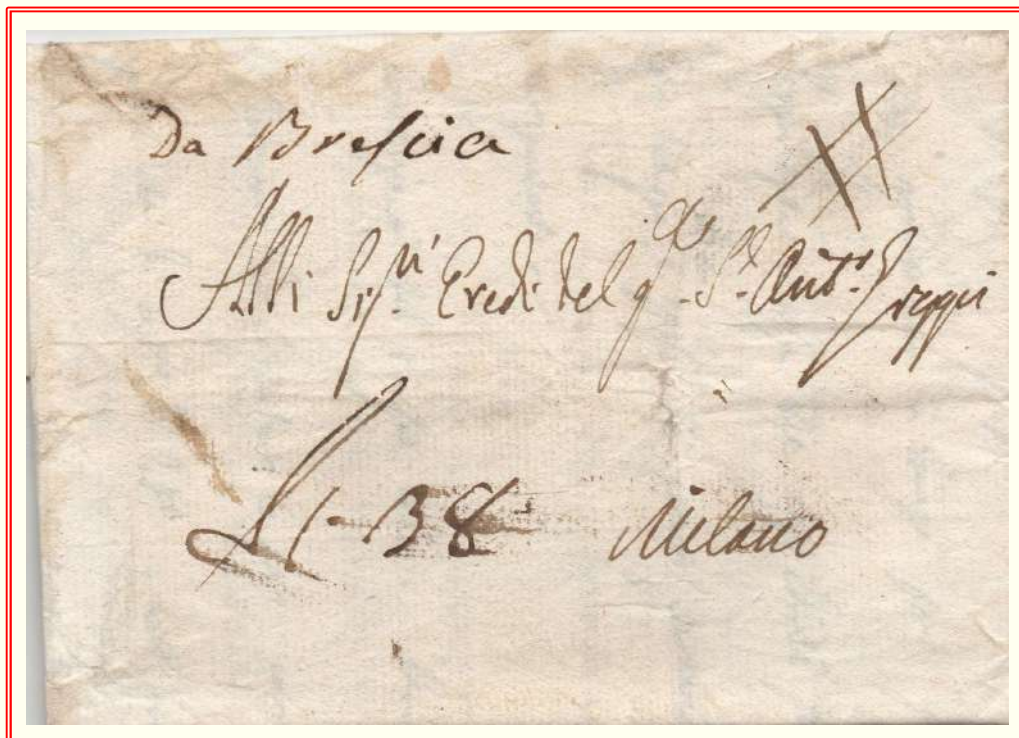 Da Brescia
Alli Sig.ri Eredi del q. S.r Ant.o Greppi
Milano